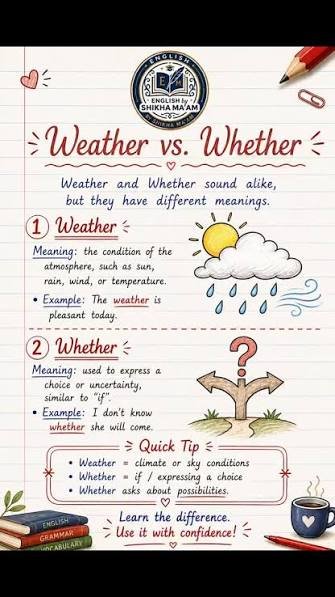 ENGLISH
E M
ENGLISH by
SHIKHA MA'AM
BY SHIKHA MA'AM
Weather vs. Whether
Weather and Whether sound alike,
but they have different meanings.
1 Weather
Meaning: the condition of the
atmosphere, such as sun,
rain, wind, or temperature.
• Example: The weather is
pleasant today.
2 Whether
Meaning: used to express a
choice or uncertainty,
similar to "if".
• Example: I don't know
whether she will come.
?
Quick Tip
• Weather = climate or sky conditions
• Whether = if / expressing a choice
• Whether asks about possibilities.
Learn the difference.
Use it with confidence!
ENGLISH
GRAMMAR
VOCABULARY